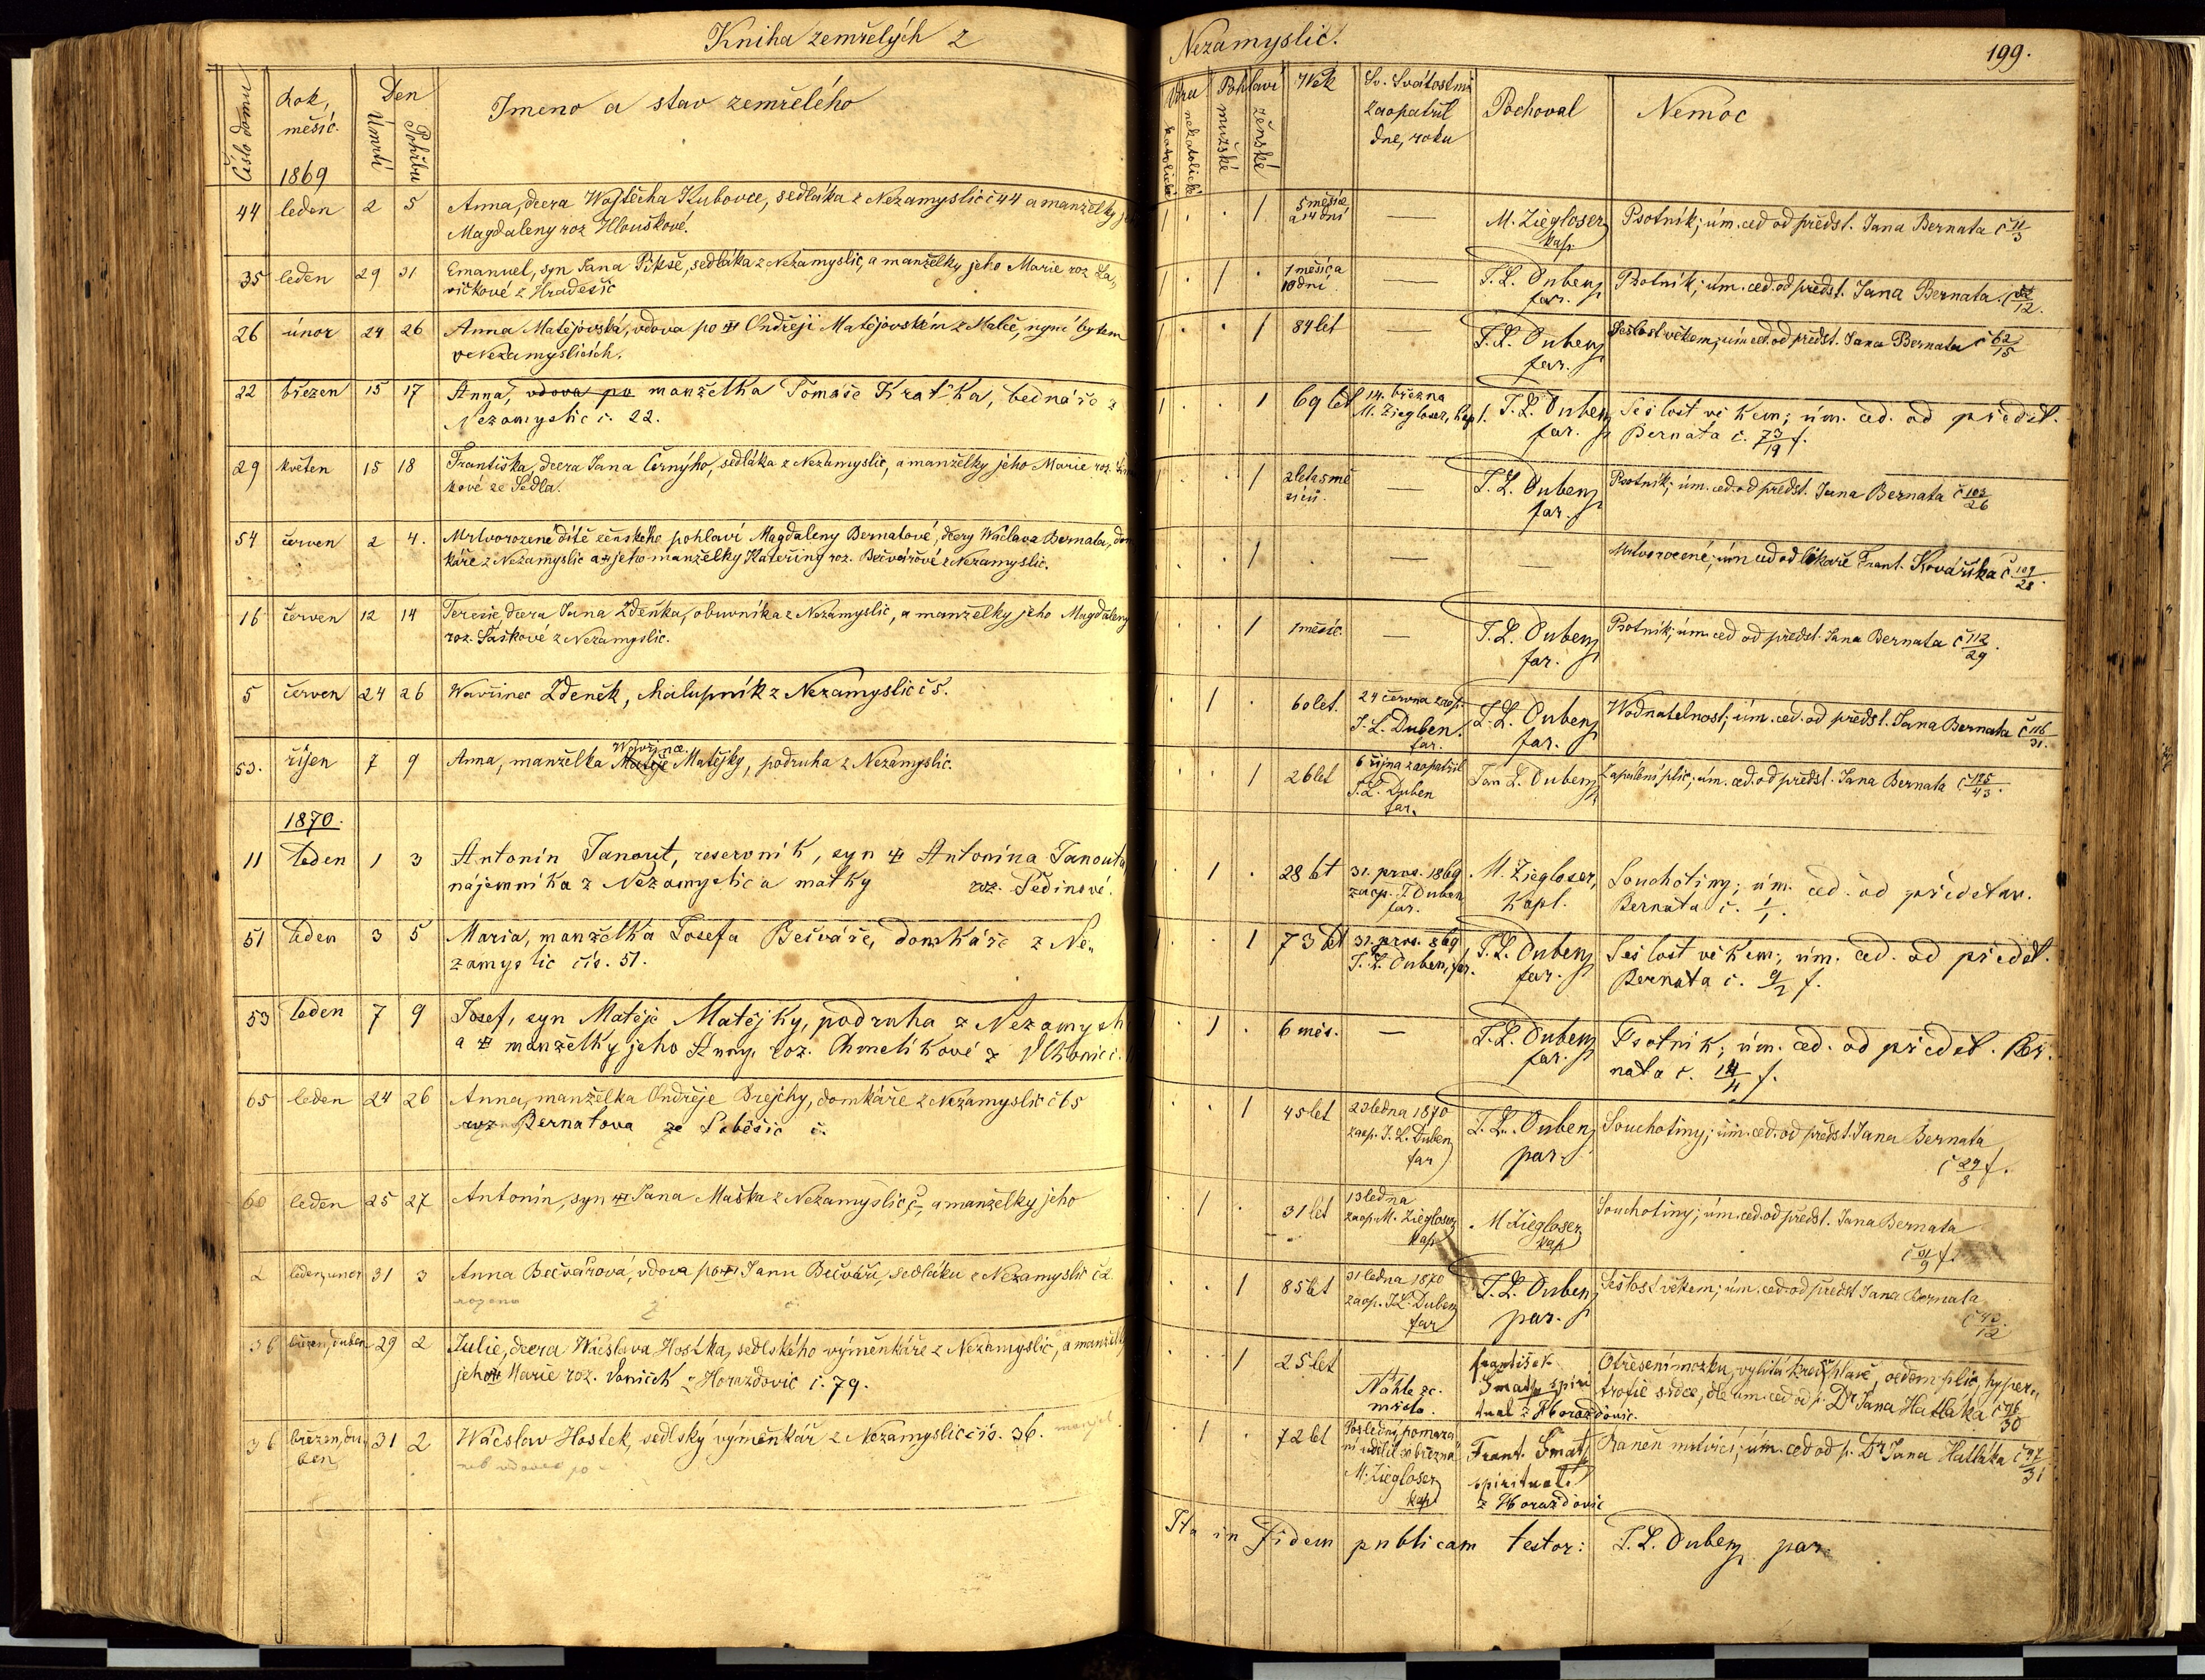 Kniha zemřelých z
Nezamyslic.
199.
Číslo domu
Rok, měsíc.
1869
Den
Úmrtí
Pohřbu
Jmeno a stav zemřelého
Víra
katolické
nekatolické
Pohlaví
mužské
ženské
Věk
Sv. Svátostmi
zaopatřil
dne, roku
Pochoval
Nemoc
44 leden 2 5 Anna, dcera Wojtěcha Kubovce, sedláka z Nezamyslic č 44 a manželky
Magdaleny roz Hlouškové.
1 1 5 měsíce
a 14 dní — M. Ziegloser
kap. Psotník; úm. ced od předst. Jana Bernata č 11/3
35 leden 29 31 Emanuel, syn Jana Pikše, sedláka z Nezamyslic, a manželky jeho Marie roz La„
vičkové z Hradešic
1 1 1 měsíc a
10 dní — J. L. Duben
far. Psotník; úm. ced. od předst. Jana Bernata.
26 únor 24 26 Anna Matějovská, vdova po Ondřeji Matějovském z Malče, nyní bytem
v Nezamyslicích.
1 1 84 let — J. L. Duben
far. Sešlost věkem; úm ced. od předst. Jana Bernata č 62/15
22 březen 15 17 Anna, vdova po manželka Tomáše Kratka, bednáře z
Nezamyslic č. 22.
1 1 69 let 14. března
M. Ziegloser, kap. J. L. Duben
far. Sešlost věkem; úm. ced. od předst.
Bernata č. 73/19 f.
29 květen 15 18 Františka, dcera Jana Černýho, sedláka z Nezamyslic, a manželky jeho Marie roz.
kové ze Sedla.
1 1 2 leta 5 mě
síců. — J. L. Duben
far. Psotník; úm. ced. od předst. Jana Bernata č 102/26
54 červen 2 4. Mrtvorozené dítě ženského pohlaví Magdaleny Bernatové, dcery Wáclava Bernata, dom
káře z Nezamyslic a jeho manželky Kateřiny roz. Bečvářové z Nezamyslic.
1 — — Mrtvorozené; úm ced od lékaře Frant. Kovaříka č 109/28.
16 červen 12 14 Terezie, dcera Jana Zdeňka, obuvníka z Nezamyslic, a manželky jeho Magdaleny
roz. Šaškové z Nezamyslic.
1 1 měsíc. — J. L. Duben
far. Psotník; úm. ced od předst. Jana Bernata č 112/29.
5 červen 24 26 Wavřinec Zdeněk, chalupník z Nezamyslic č 5.
1 60 let. 24 června zaop.
J. L. Duben.
far. J. L. Duben
far. Wodnatelnost; úm. ced. od předst. Jana Bernata č 116/31.
53. říjen 7 9 Anna, manželka Matěje Wavřince Matějky, podruha z Nezamyslic.
1 26 let 6 října zaopatřil
J. L. Duben
far. Jan L. Duben Zapálení plic; úm. ced. od předst. Jana Bernata č 175/43.
1870.
11 leden 1 3 Antonín Janout, reservník, syn Antonína Janouta
nájemníka z Nezamyslic a matky roz. Šedinové.
1 28 let 31. pros. 1869
zaop. J. Duben
far. M. Ziegloser,
kapl. Souchotiny; úm. ced. od představ.
Bernata č. 1/1.
51 leden 3 5 Maria, manželka Josefa Bečváře, domkáře z Ne„
zamyslic čís. 51.
1 1 73 let 31. pros. 869
J. L. Duben, far. J. L. Duben
far. Sešlost věkem; úm. ced. od předst.
Bernata č. 9/2 f.
53 leden 7 9 Josef, syn Matěje Matějky, podruha z Nezamysl
a manželky jeho Anny roz. Chmelíkové z Vlkonic č.
1 6 měs. — J. L. Duben
far. Psotník; úm. ced. od předst. Ber.
nata č. 14/4 f.
65 leden 24 26 Anna, manželka Ondřeje Brejchy, domkáře z Nezamyslic č 65
roz Bernatova ze Soběšic č.
1 45 let 23 ledna 1870
zaop. J. L. Duben
far J. L. Duben
par. Souchotiny; úm. ced. od předst. Jana Bernata
č 29/8 f.
60 leden 25 27 Antonín, syn Jana Maška z Nezamyslic č , a manželky jeho
1 31 let 13 ledna
zaop. M. Ziegloser
kap M Ziegloser
kap Souchotiny; úm. ced. od předst. Jana Bernata
č 31/9 f.
2 leden, únor 31 3 Anna Bečvářová, vdova po Janu Bečváři, sedláku z Nezamyslic č 2.
rozena z č.
1 85 let 31 ledna 1870
zaop. J L. Duben
far J. L. Duben
par. Sešlost věkem; úm. ced. od předst Jana Bernata
36 březen, duben 29 2 Julie, dcera Wácslava Hostka, sedlského výměnkáře z Nezamyslic, a manželky
jeho Marie roz. Vaníček z Horažďovic č. 79.
1 25 let Náhle ze-
mřela. František
Šmat spiri
tual z Horažďovic. Otřesení mozku, vylitá krev v hlavě, oedem plic, hyper„
trofie srdce, dle úm. ced od p. Dr Jana Hatláka č 96/30
36 březen, du
ben 31 2 Wácslav Hostek, sedlský výměnkář z Nezamyslic čís. 36. manžel
neb vdovec po
1 72 let Poslední pomazá
ní udělil 30 března
M. Ziegloser
kap. Frant. Šmat
spiritual
z Horažďovic Raněn mrtvicí; úm. ced od p. Dr Jana Hatláka č 97/31
Ita in fidem publicam testor: J. L. Duben par.